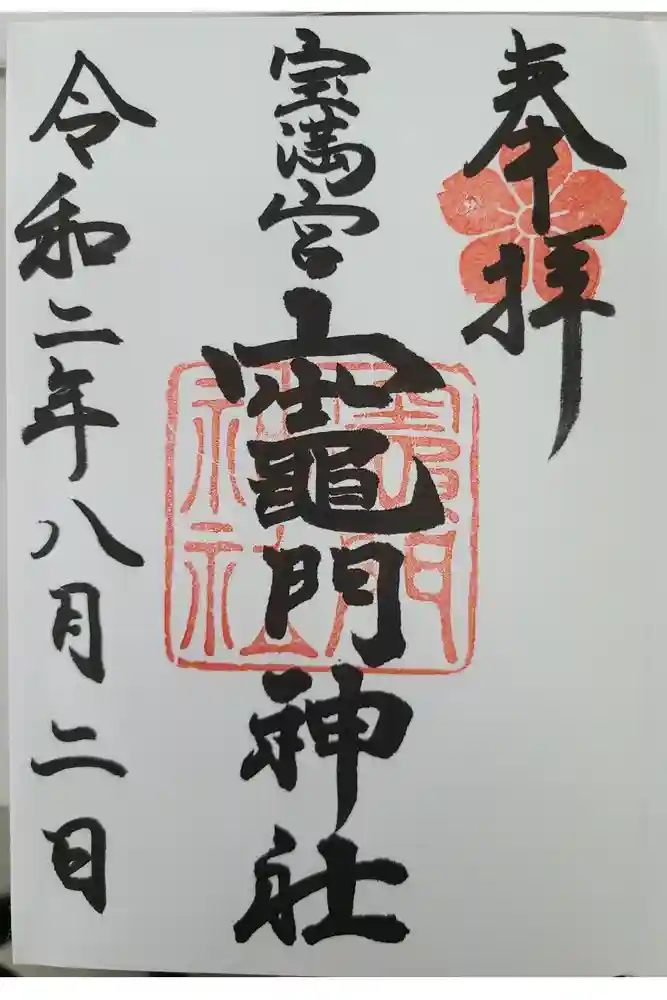 奉拝
宝満宮
竈門神社
竈門神社
令和二年八月二日